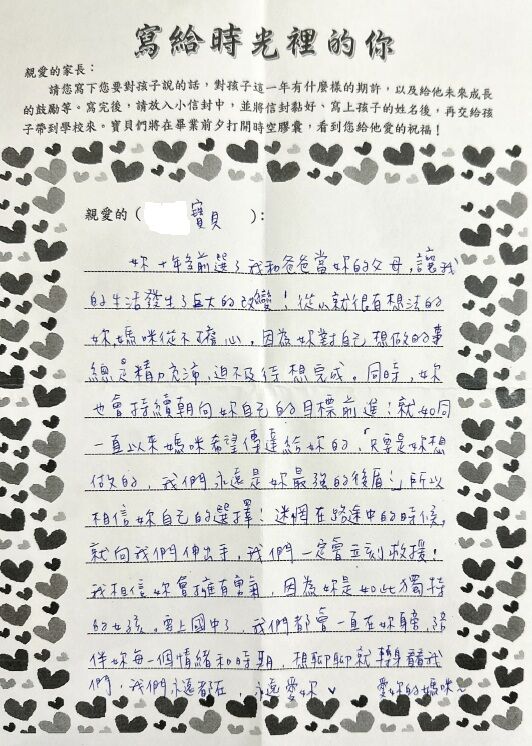 寫給時光裡的你
親愛的家長：
請您寫下您要對孩子說的話，對孩子這一年有什麼樣的期許，以及給他未來成長
的鼓勵等。寫完後，請放入小信封中，並將信封黏好、寫上孩子的姓名後，再交給孩
子帶到學校來。寶貝們將在畢業前夕打開時空膠囊，看到您給他愛的祝福！
親愛的（ 寶貝 ）：
妳十年多前選了我和爸爸當妳的父母，讓我
的生活發生了巨大的改變！從小就很有想法的
妳，媽咪從不擔心，因為妳對自己想做的事
總是精力充沛，迫不及待想完成。同時，妳
也會持續朝向妳自己的目標前進！就如同
一直以來媽咪希望傳達給妳的，「只要是妳想
做的，我們永遠是妳最強的後盾！」所以
相信妳自己的選擇！迷惘在路途中的時候，
就向我們伸出手，我們一定會立刻救援！
我相信妳會擁有勇氣，因為妳是如此獨特
的女孩。要上國中了，我們都會一直在妳旁，陪
伴妳每一個情緒和時期，想聊聊就轉身看我
們，我們永遠都在，永遠愛妳♥ 愛妳的媽咪～